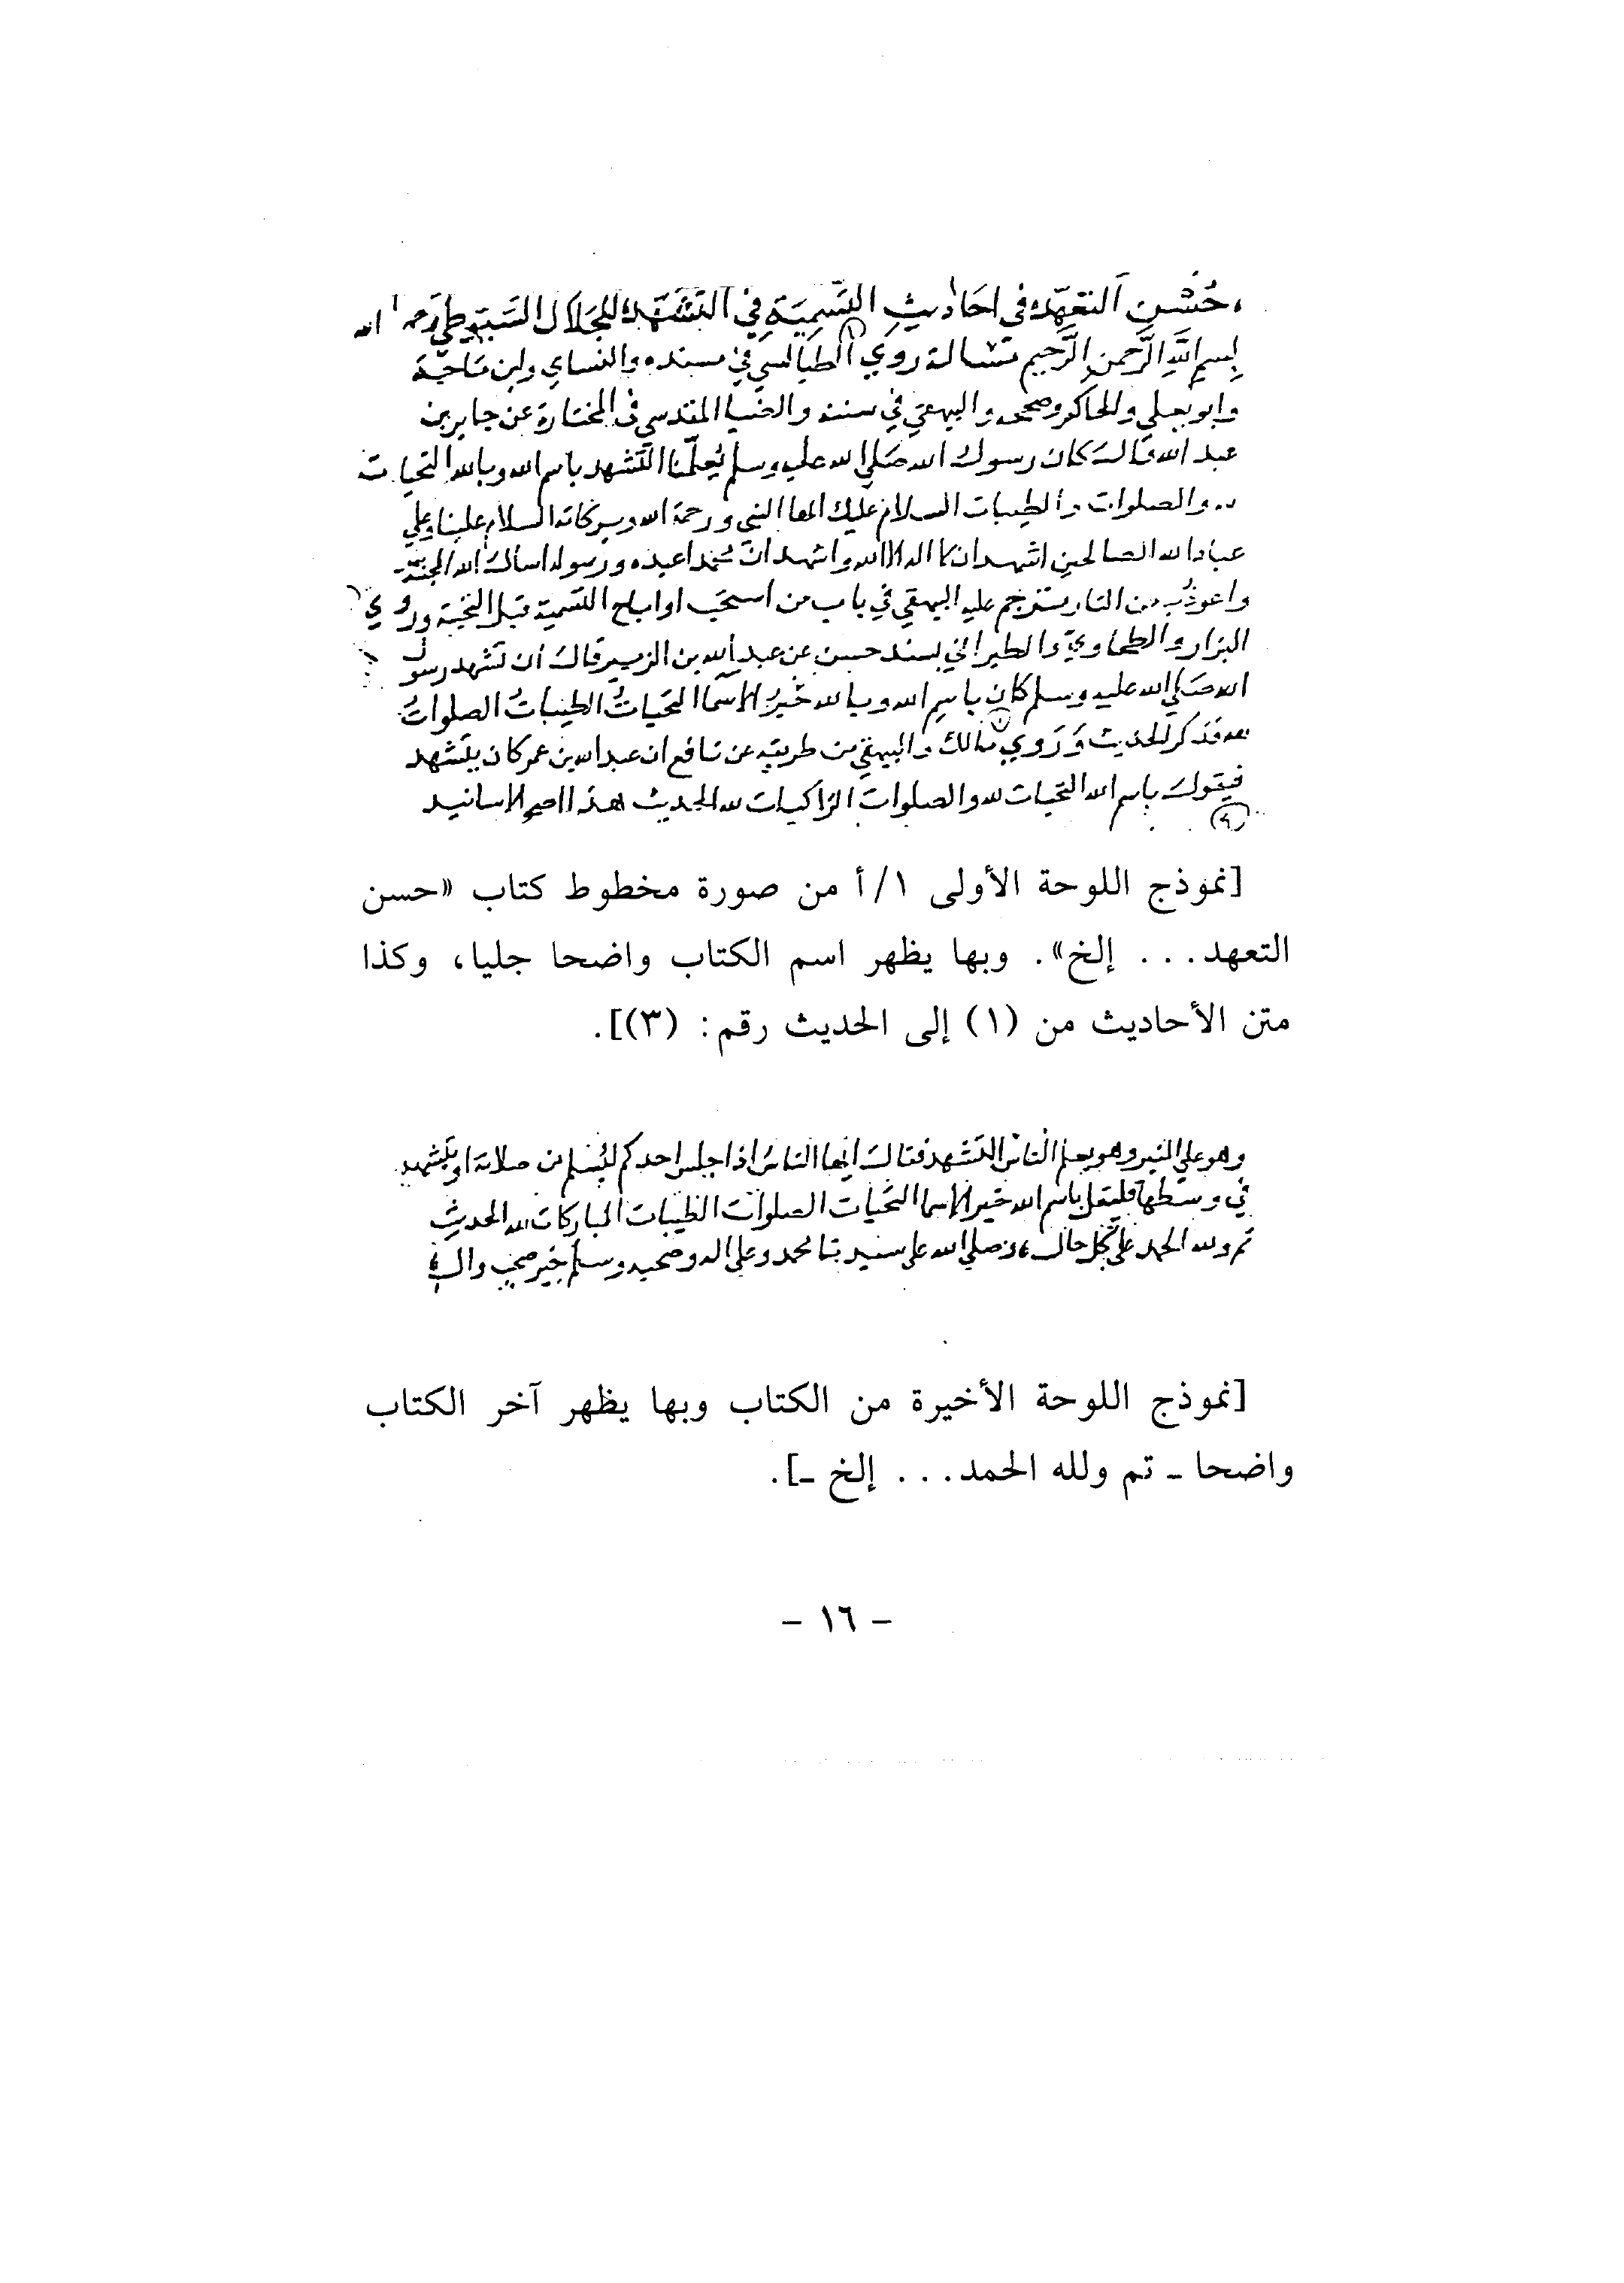 حُسْن التعهّد في احَاديثِ التَّسْمِيَةِ في التشَهّد للجَلال السّيوطي رحمه الله
بِسمِ اللَّهِ الرَّحمنِ الرَّحيمِ روي الطيالسي في مسنده والنساي وابن ماجة
وابو يعلي والحاكم وصححه والبيهقي في سننه والضيا المقدسي في المختارة عن جابر بن
عبد الله قال كان رسول الله صَلي الله عليه وسلم يُعلّمنا التشهد باسم الله وبالله التحيات
والصلوات والطيبات السلام عليك ايها النبي ورحمة الله وبركاته السلام علينا وعلي
عباد الله الصالحين اشهد ان لا اله الا الله واشهد ان محمدا عبده ورسوله اسال الله الجنة
واعوذ به من النار يترجم عليه البيهقي في باب من استحَب او اباح التسمية قبل التحية وروي
البزار والطحاوي والطبراني بسند حسن عن عبد الله بن الزبير قال أن تشهد رسول
الله صَلي الله عليه وسلم كان باسم الله وبالله خَيرُ الاسما التحَياتُ الطيباتُ الصلواتُ
لله فذكر الحديث وَرَوي مالك والبيهقي من طريقه عن نافع ان عبد الله بن عمر كان يتشهد
فيقول باسم الله التحيات لله والصلوات الزاكيات لله الحديث هذا اصح الاسانيد
[نموذج اللوحة الأولى ١/أ من صورة مخطوط كتاب «حسن
التعهد... إلخ». وبها يظهر اسم الكتاب واضحا جليا، وكذا
متن الأحاديث من (١) إلى الحديث رقم: (٣)].
وهو علي المنبر وهو يعلم الناس التشهد فقال ايها الناسُ اذا جلس احدكم ليُسلم من صلاته او يتشهد
في وسطها فليقل باسم الله خير الاسما التحَيات الصلوات الطيبات المباركات لله الحديث
تم ولله الحمد علي كل حال وصلي الله على سيدنا محمد وعلي اله وصحبه وسلم خير صحب وال
[نموذج اللوحة الأخيرة من الكتاب وبها يظهر آخر الكتاب
واضحا ـ تم ولله الحمد... إلخ ـ].
- ١٦ -